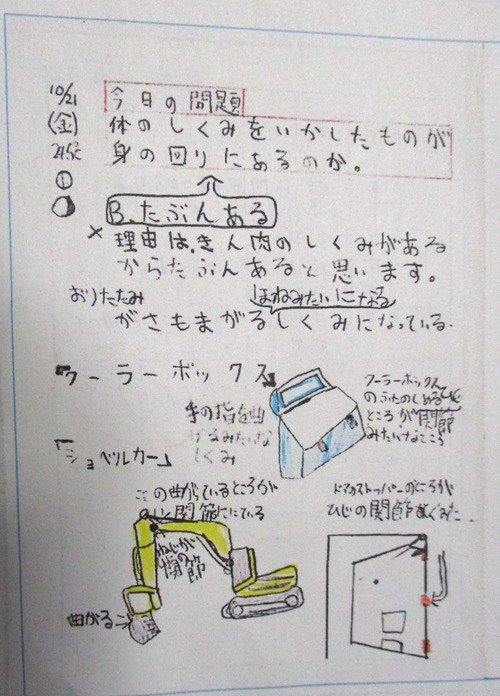 10/21
(金)
24.5℃
①
今日の問題
体のしくみをいかしたものが
身の回りにあるのか。
B.たぶんある
理由は、きん肉のしくみがある
からたぶんあると思います。
おりたたみ
ほねみたいになる
がさもまがるしくみになっている.
『クーラーボックス』
手の指を曲
げるみたいな
しくみ
クーラーボックス
のふたのしめるひじ
ところが関節
みたいなところ
「ショベルカー」
ここの曲がっているところが
関節ににている
ねじが
の
関節
曲がる
ドアのストッパーのところが
ひじの関節